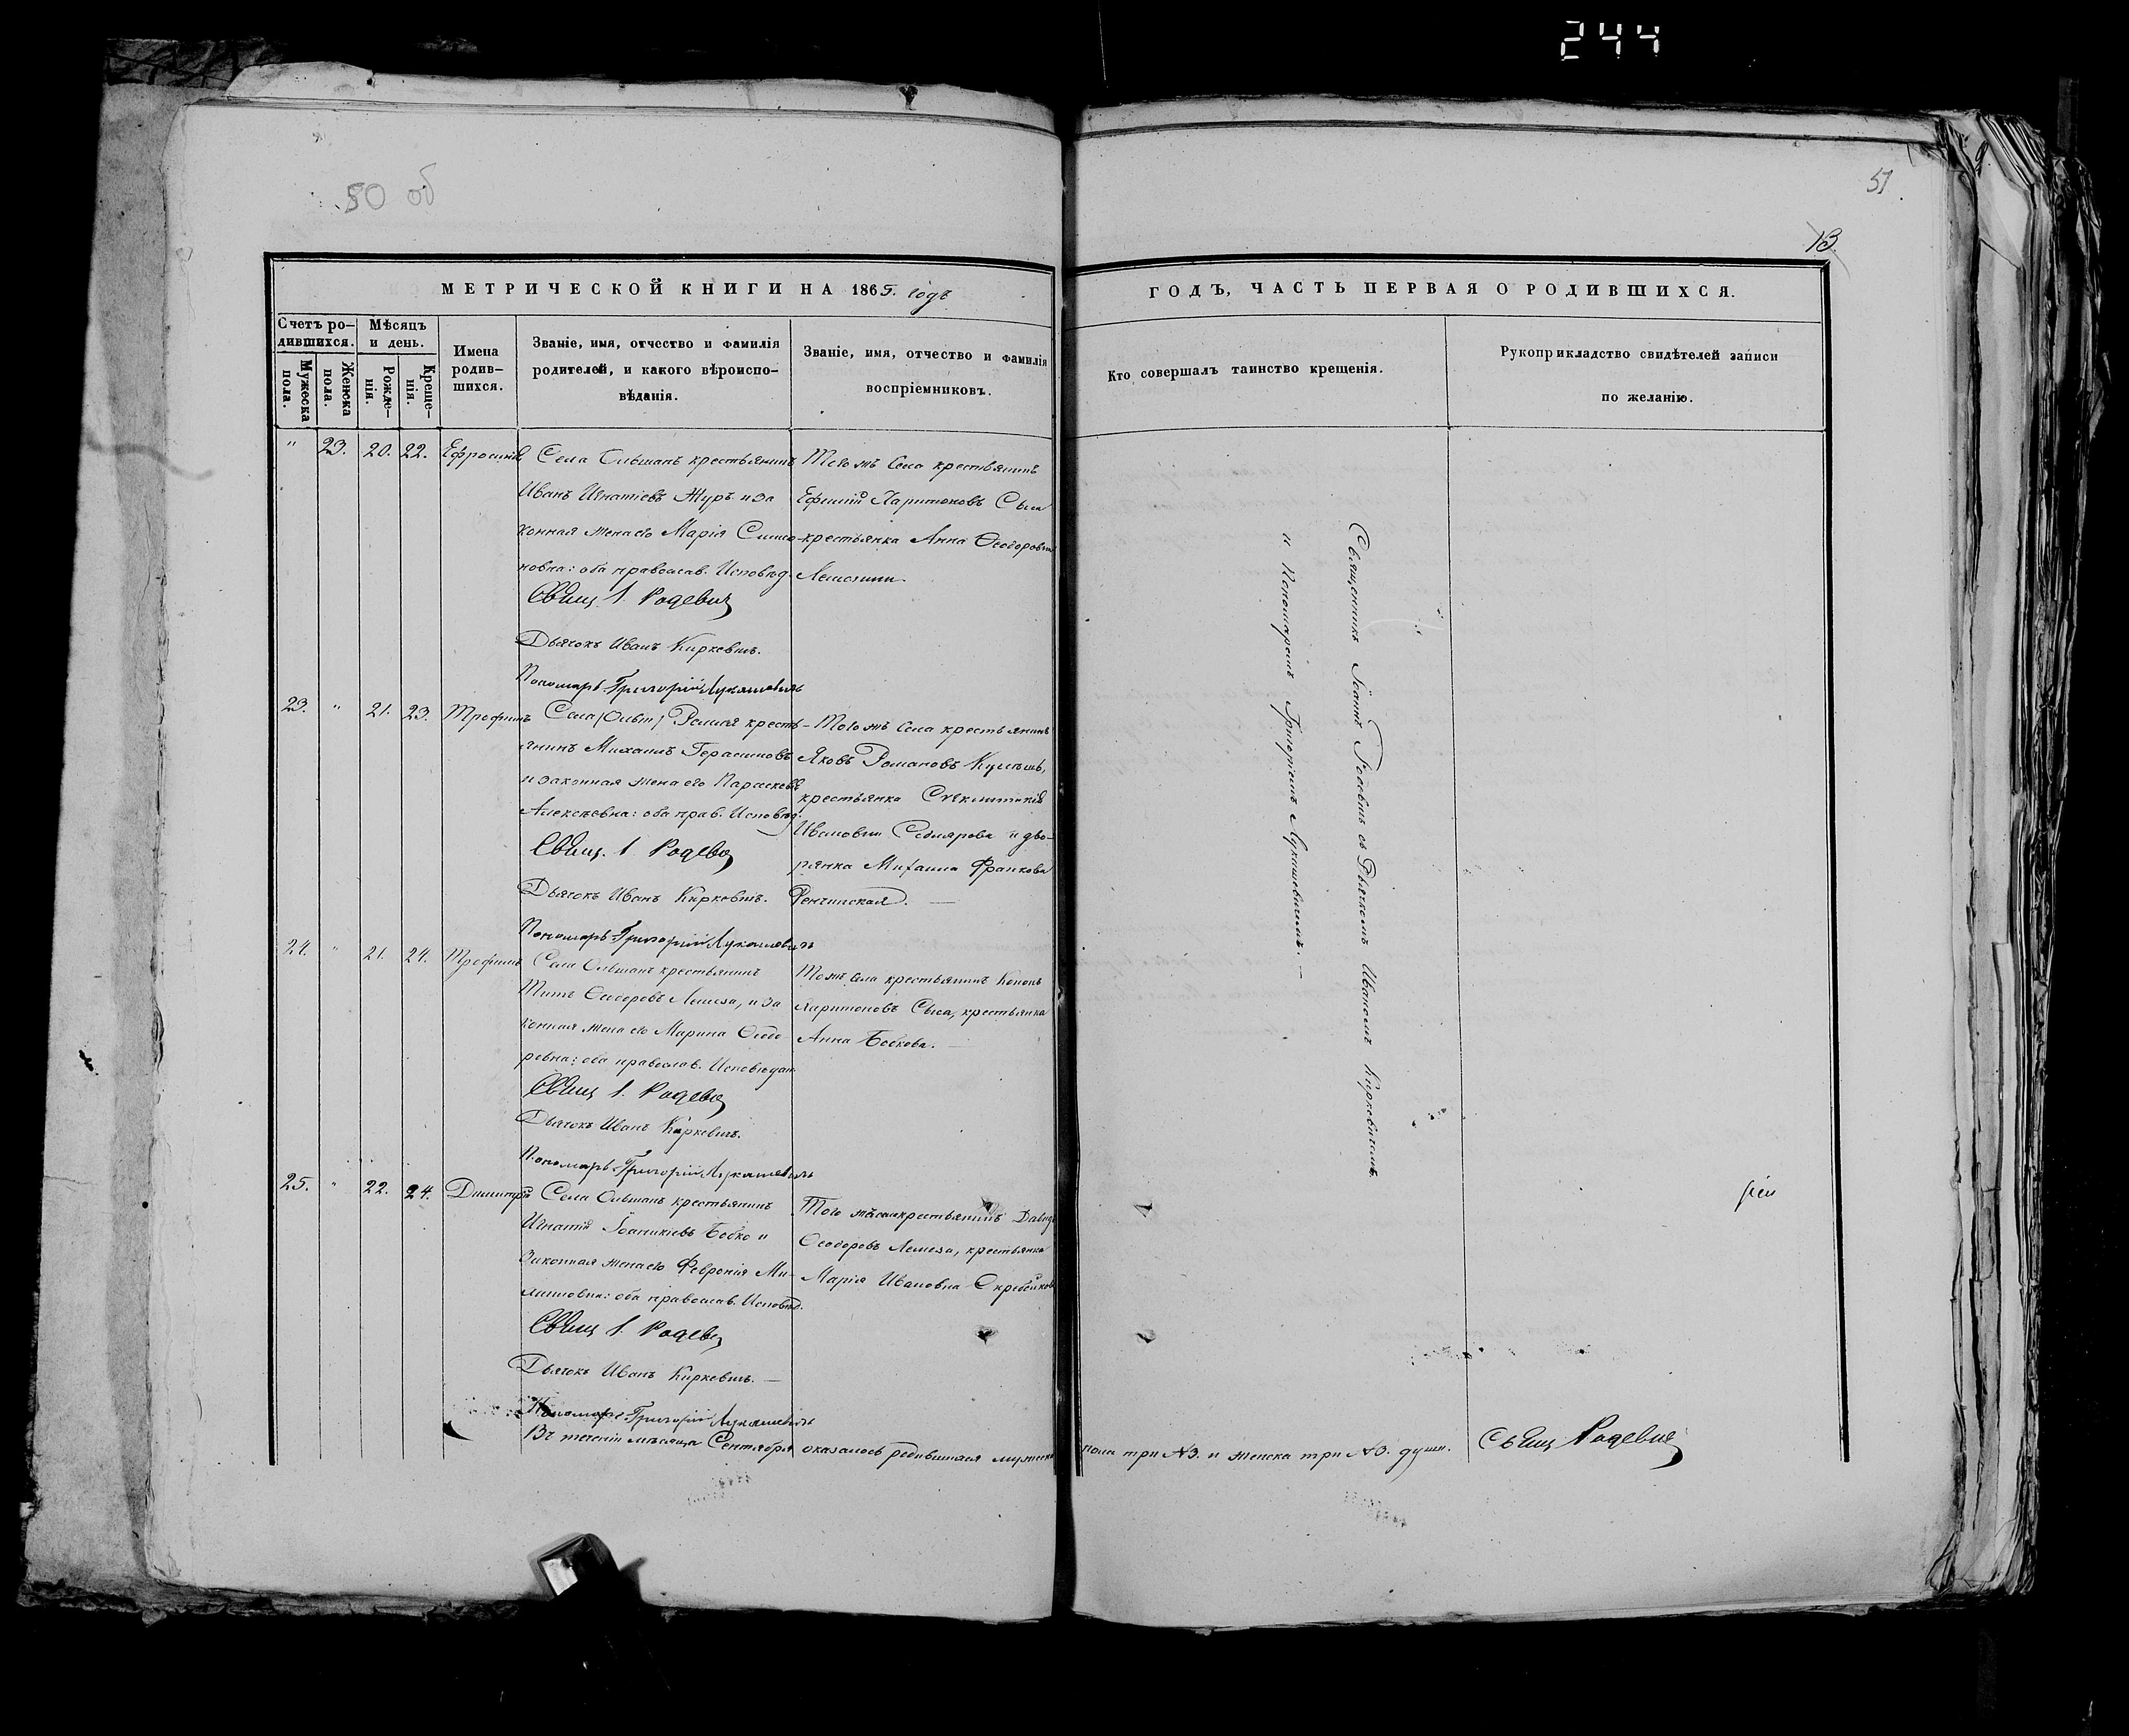 244
50 об
51
13
МЕТРИЧЕСКОЙ КНИГИ НА 1865. годъ
ГОДЪ, ЧАСТЬ ПЕРВАЯ О РОДИВШИХСЯ.
Счетъ ро-
дившихся.
Мужеска
пола.
Женска
пола.
Мѣсяцъ
и день.
Рожде-
нія.
Креще-
нія.
Имена
родив-
шихся.
Званіе, имя, отчество и фамилія
родителей, и какого вѣроиспо-
вѣданія.
Званіе, имя, отчество и фамилія
воспріемниковъ.
Кто совершалъ таинство крещенія.
Рукоприкладство свидѣтелей записи
по желанію.
" 23. 20. 22. Ефросинія
Села Ольшанъ крестьянинъ
Иванъ Игнатіевъ Журъ и за
конная жена его Марія Симо
новна: оба православ. Исповѣд.
Свящ. І. Родевич
Дьячокъ Иванъ Киркевичъ.
Пономарь Григорій Лукашевичъ
Того жъ Села крестьянинъ
Ефимій Харитоновъ Сыса
крестьянка Анна Ѳеодоровна
23. " 21. 23. Трофимъ
Села Ольш крестъ-
янинъ Михаилъ Герасимовъ
и законная жена его Параскева
Алексѣевна: оба прав. Исповѣд.
Свящ. І. Родевич
Дьячокъ Иванъ Киркевичъ.
Пономарь Григорій Лукашевичъ
Того жъ Села крестьянинъ
Яковъ Романовъ
крестьянка
Ивановна и дво-
рянка Михалина
24. " 21. 24. Трофимъ
Села Ольшанъ крестьянинъ
Титъ Ѳеодоровъ Лемеза, и за
конная жена его Марина Ѳеодо
ровна: оба православ. Исповѣдан
Свящ І. Родевич
Дьячокъ Иванъ Киркевичъ.
Пономарь Григорій Лукашевичъ
Тожъ Села крестьянинъ Кононъ
Харитоновъ Сыса, крестьянка
Анна Бобкова.
25. " 22. 24. Димитрій
Села Ольшанъ крестьянинъ
Игнатій Іоаникіевъ Бобко и
Законная жена его Февронія Ми-
: оба православ. Исповѣд.
Свящ І. Родевич
Дьячокъ Иванъ Киркевичъ.
Пономарь Григорій Лукашевичъ
Того жъ села крестьянинъ Давидъ
Ѳеодоровъ Лемеза, крестьянка
Марія Ивановна
Священникъ Іоаннъ Родевичъ съ Дьячкомъ Иваномъ Киркевичемъ
и Пономаремъ Григоріемъ Лукашевичемъ.
Въ теченіи мѣсяца Сентября оказалось родившихся мужеска пола три №3. и женска три №3. душъ.
Свящ Родевич